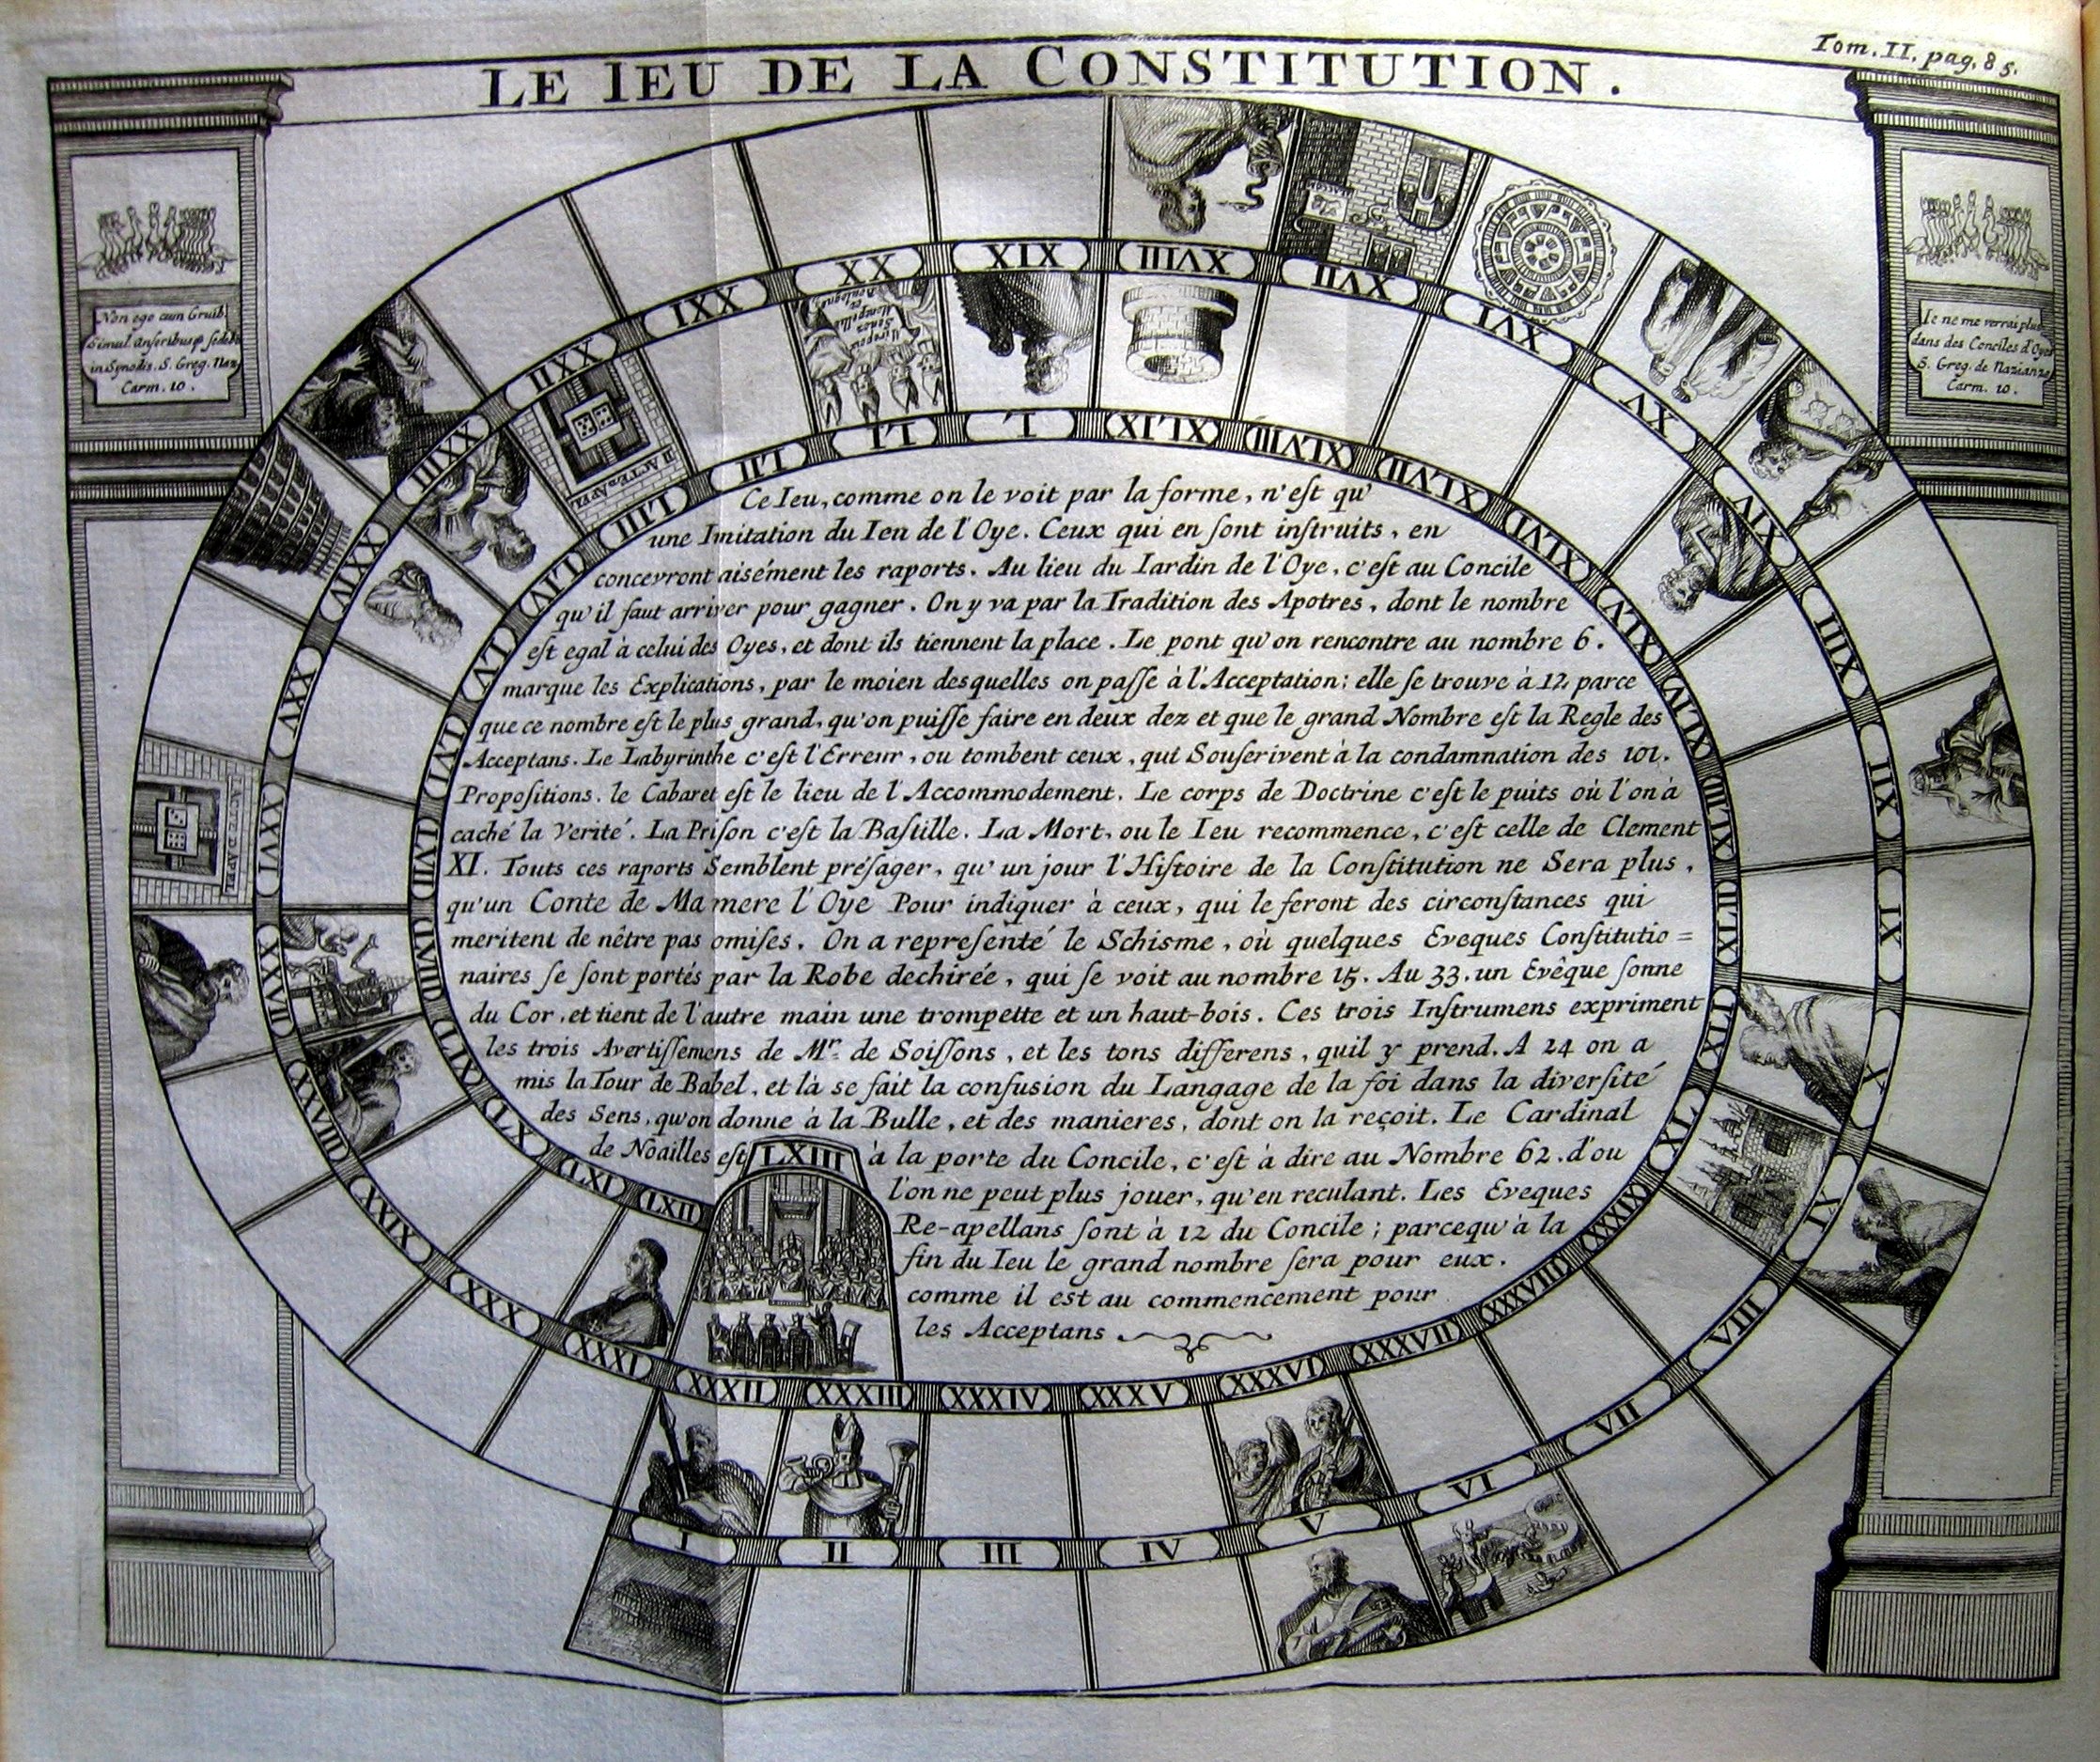 LE IEU DE LA CONSTITUTION.
Tom. II. pag. 85.
Non ego cum Gruib.
Simul anseribusq sedebo
in Synodis. S. Greg. Naz
Carm. 10.
Ie ne me verrai plus
dans des Conciles d'Oyes
S. Greg. de Nazianze
Carm. 10.
Ce Ieu, comme on le voit par la forme, n'est qu'
une Imitation du Ieu de l'Oye. Ceux qui en sont instruits, en
concevront aisément les raports. Au lieu du Iardin de l'Oye, c'est au Concile
qu'il faut arriver pour gagner. On y va par la Tradition des Apotres, dont le nombre
est egal à celui des Oyes, et dont ils tiennent la place. Le pont qu'on rencontre au nombre 6.
marque les Explications, par le moien desquelles on passe à l'Acceptation; elle se trouve à 12, parce
que ce nombre est le plus grand, qu'on puisse faire en deux dez et que le grand Nombre est la Regle des
Acceptans. Le Labyrinthe c'est l'Erreur, ou tombent ceux, qui Souscrivent à la condamnation des 101.
Propositions. le Cabaret est le lieu de l'Accommodement. Le corps de Doctrine c'est le puits où l'on à
caché la Verité. La Prison c'est la Bastille. La Mort, ou le Ieu recommence, c'est celle de Clement
XI. Touts ces raports Semblent présager, qu'un jour l'Histoire de la Constitution ne Sera plus,
qu'un Conte de Ma mere l'Oye Pour indiquer à ceux, qui le feront des circonstances qui
meritent de nêtre pas omises. On a representé le Schisme, où quelques Eveques Constitutio=
naires se sont portés par la Robe dechirée, qui se voit au nombre 15. Au 33. un Evêque sonne
du Cor, et tient de l'autre main une trompette et un haut-bois. Ces trois Instrumens expriment
les trois Avertissemens de Mr. de Soissons, et les tons differens, quil y prend. A 24 on a
mis la Tour de Babel, et là se fait la confusion du Langage de la foi dans la diversité
des Sens, qu'on donne à la Bulle, et des manieres, dont on la reçoit. Le Cardinal
de Noailles est à la porte du Concile, c'est à dire au Nombre 62. d'ou
l'on ne peut plus jouer, qu'en reculant. Les Eveques
Re-apellans sont à 12 du Concile; parcequ'à la
fin du Ieu le grand nombre sera pour eux.
comme il est au commencement pour
les Acceptans
I
II
III
IV
V
VI
VII
VIII
IX
X
IX
XII
XIII
XIV
XV
XVI
XVII
XVIII
XIX
XX
XXI
XXII
XXIII
XXIV
XXV
XXVI
XXVII
XXVIII
XXIX
XXX
XXXI
XXXII
XXXIII
XXXIV
XXXV
XXXVI
XXXVII
XXXVIII
XXXIX
XL
XLI
XLII
XLIII
XLIV
XLV
XLVI
XLVII
XLVIII
XLIX
L
LI
LII
LIII
LIV
LV
LVI
LVII
LVIII
LIX
LX
LXI
LXII
LXIII
I ACTE D'APEL
II ACTE D'APEL